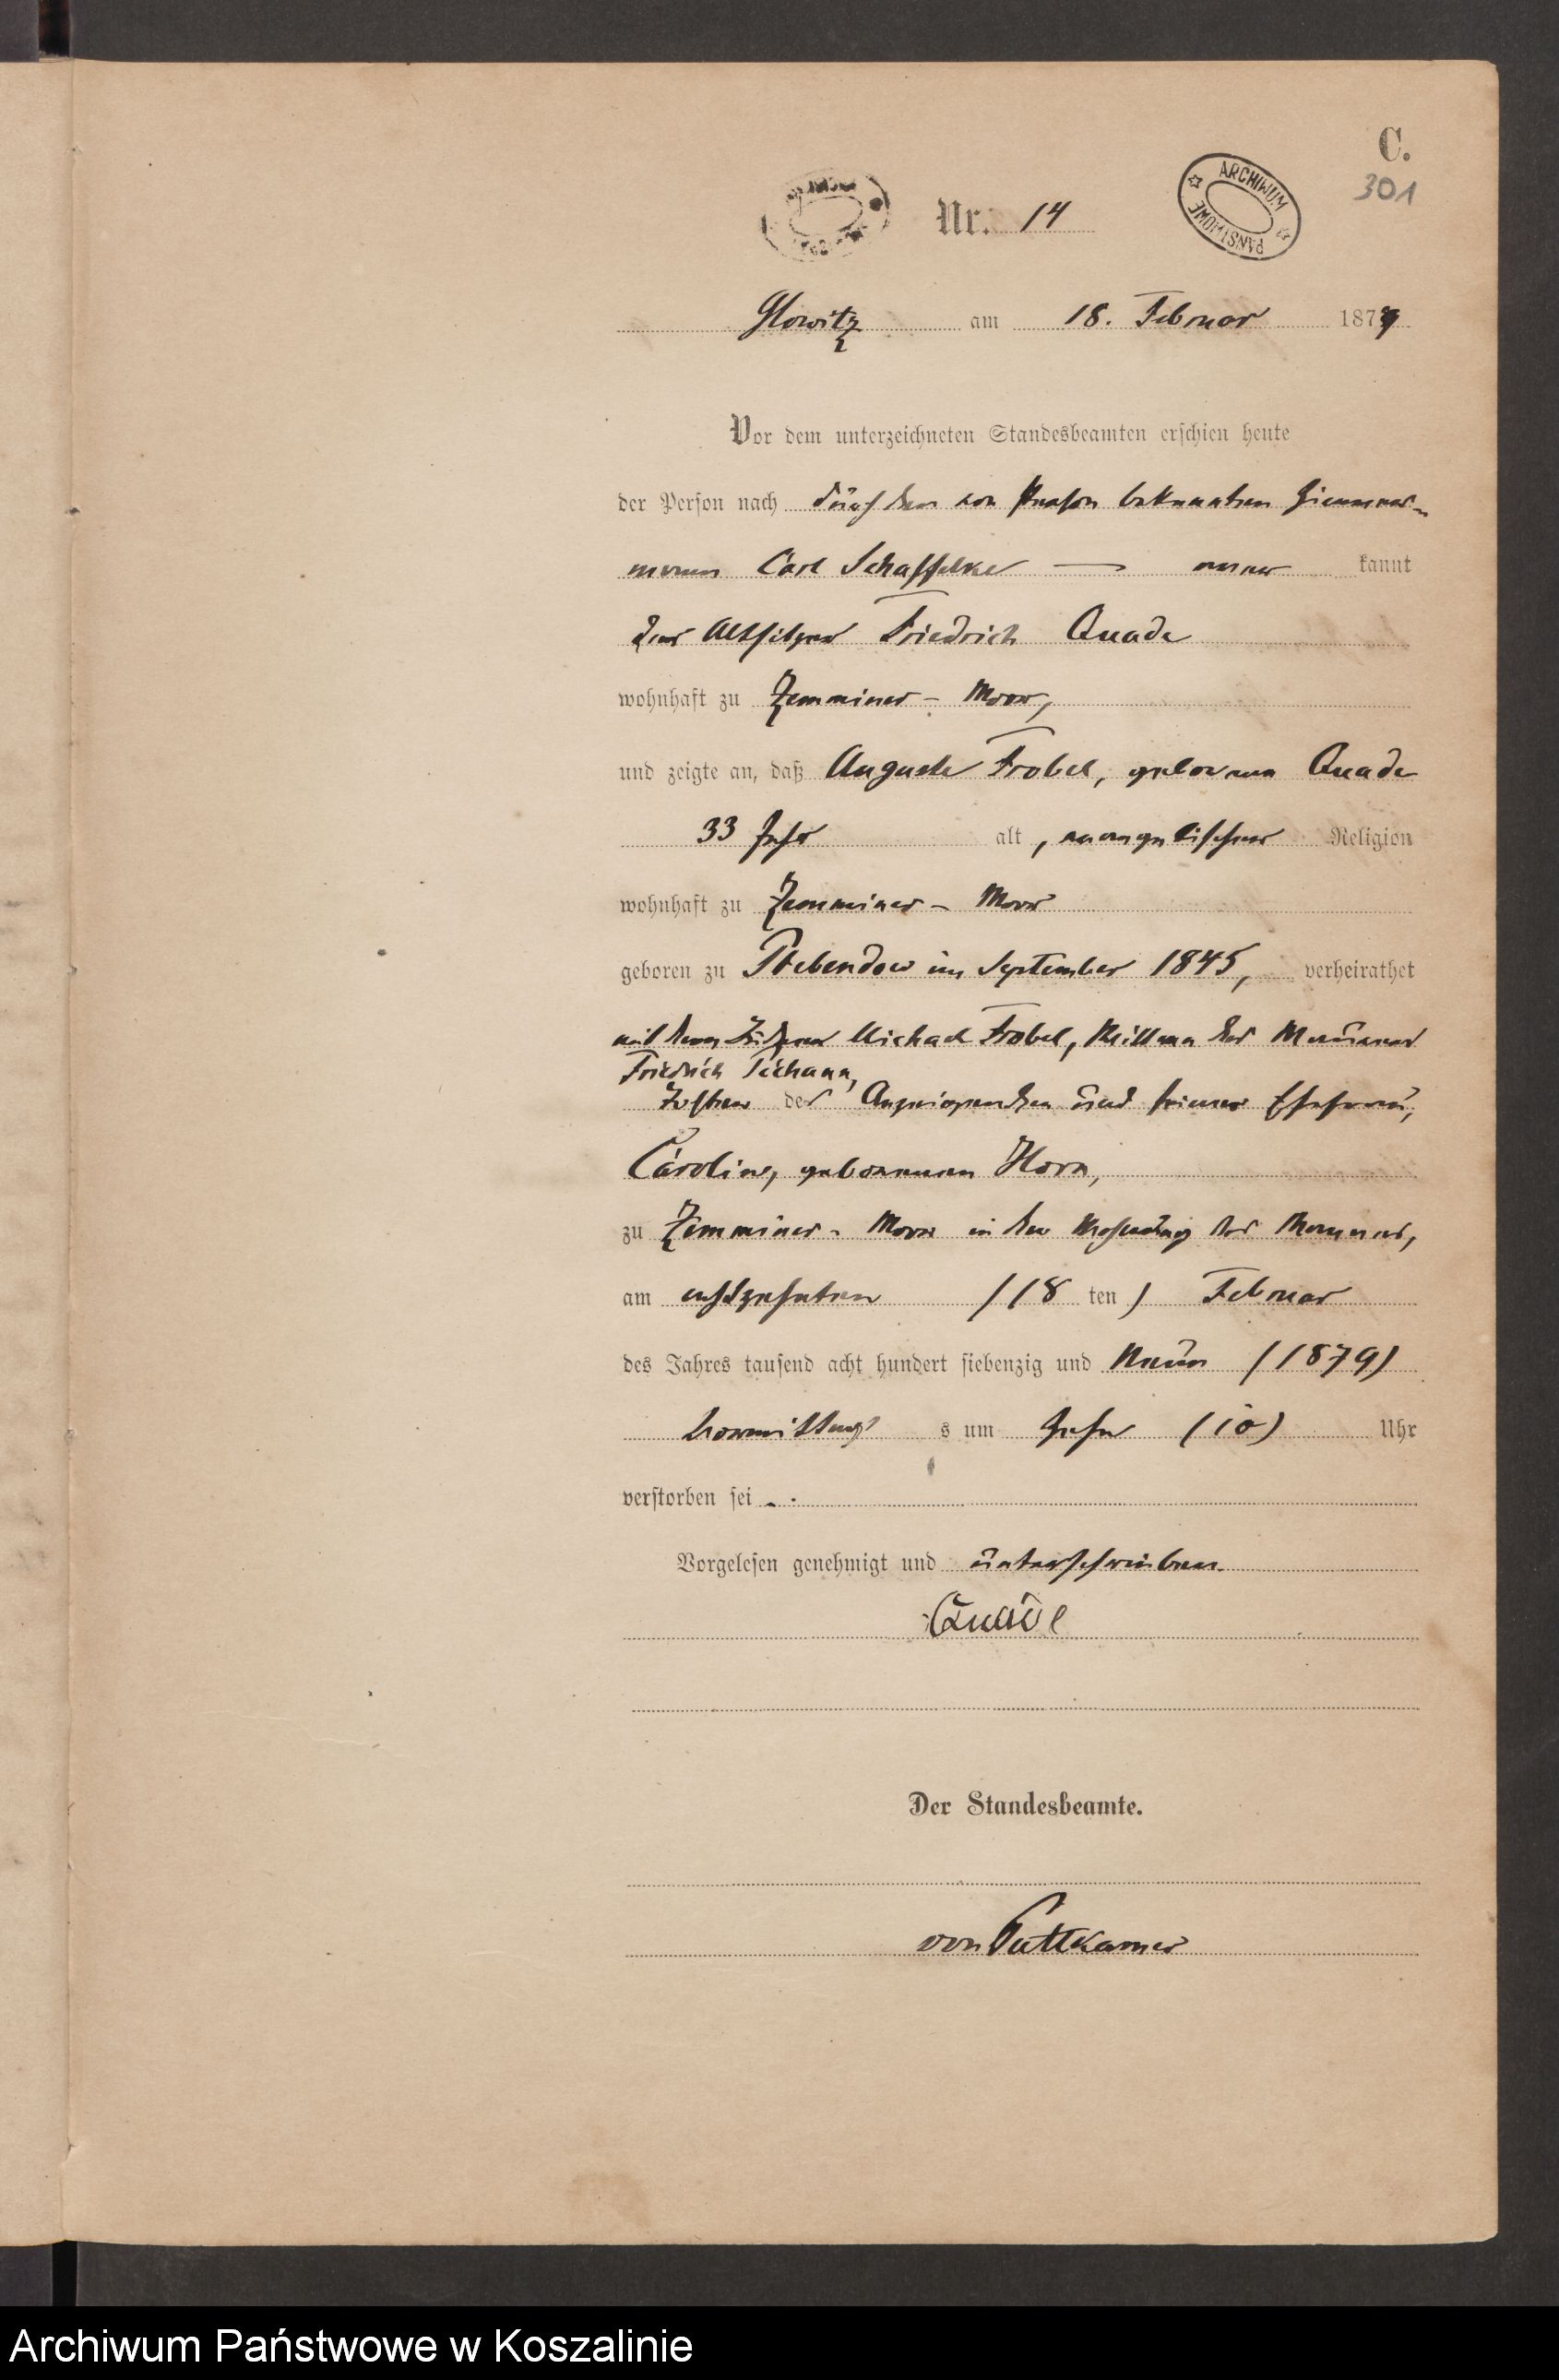 C.
301
ARCHIWUM PAŃSTWOWE
Nr. 14
Glowitz am 18. Februar 1879
Vor dem unterzeichneten Standesbeamten erschien heute
der Person nach durch den von Person bekannten Zimmer-
mann Carl Schaffelke — aner kannt
der Altsitzer Friedrich Quade
wohnhaft zu Zemminer-Moor,
und zeigte an, daß Auguste Frobel, geborene Quade
33 Jahr alt, evangelischer Religion
wohnhaft zu Zemminer-Moor
geboren zu Stebendow im September 1845, verheirathet
mit dem Michael Frobel, des Maurer
Friedrich
Tochter des Anzeigenden und seiner Ehefrau,
Caroline, geborenen Horn,
zu Zemminer-Moor in der Wohnung des
am achtzehnten (18 ten) Februar
des Jahres tausend acht hundert siebenzig und Neun (1879)
Vormittag s um Zehn (10) Uhr
verstorben sei.
Vorgelesen genehmigt und unterschrieben.
Quade
Der Standesbeamte.
von Puttkamer
Archiwum Państwowe w Koszalinie